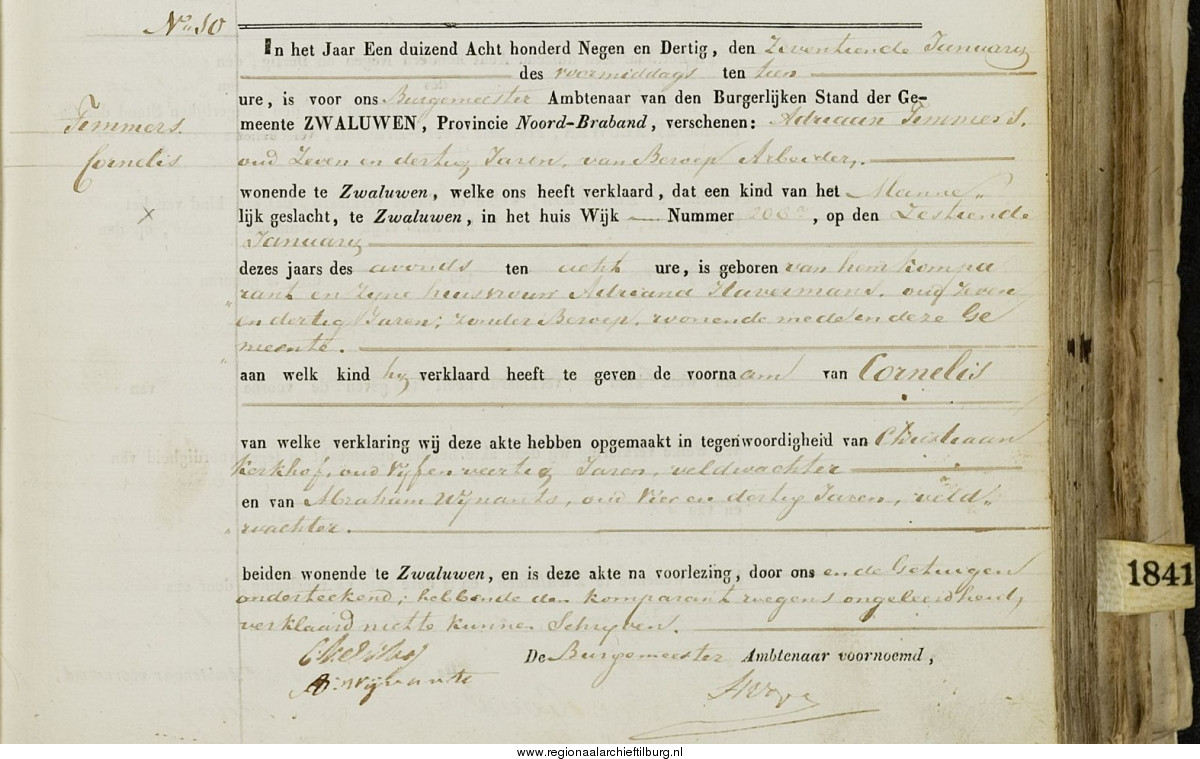 No 10
In het Jaar Een duizend Acht honderd Negen en Dertig, den Zeventiende January
des voormiddags ten tien
ure, is voor ons Burgemeester Ambtenaar van den Burgerlijken Stand der Ge-
Temmers.
meente ZWALUWEN, Provincie Noord-Braband, verschenen: Adriaan Temmers.
Cornelis
oud Zeven en dertig Jaren, van Beroep Arbeider,
wonende te Zwaluwen, welke ons heeft verklaard, dat een kind van het Manne„
lijk geslacht, te Zwaluwen, in het huis Wijk — Nummer , op den Zestiende
January
dezes jaars des avonds ten acht ure, is geboren van hem kompa
rant en zyne huisvrouw Adriana Havermans, oud Zeven
en dertig Jaren; zonder Beroep, wonende mede in deze Ge
meente.
aan welk kind hy verklaard heeft te geven de voornaam van Cornelis
van welke verklaring wij deze akte hebben opgemaakt in tegenwoordigheid van Christiaan
Kerkhof, oud Vyf en veertig Jaren, veldwachter
en van Abraham Wynants, oud Vier en dertig Jaren, veld„
wachter.
beiden wonende te Zwaluwen, en is deze akte na voorlezing, door ons en de Getuigen
onderteekend; hebbende den komparant wegens ongeleerdheid,
verklaard niet te kunnen Schryven.
De Burgemeester Ambtenaar voornoemd,
1841
www.regionaalarchieftilburg.nl